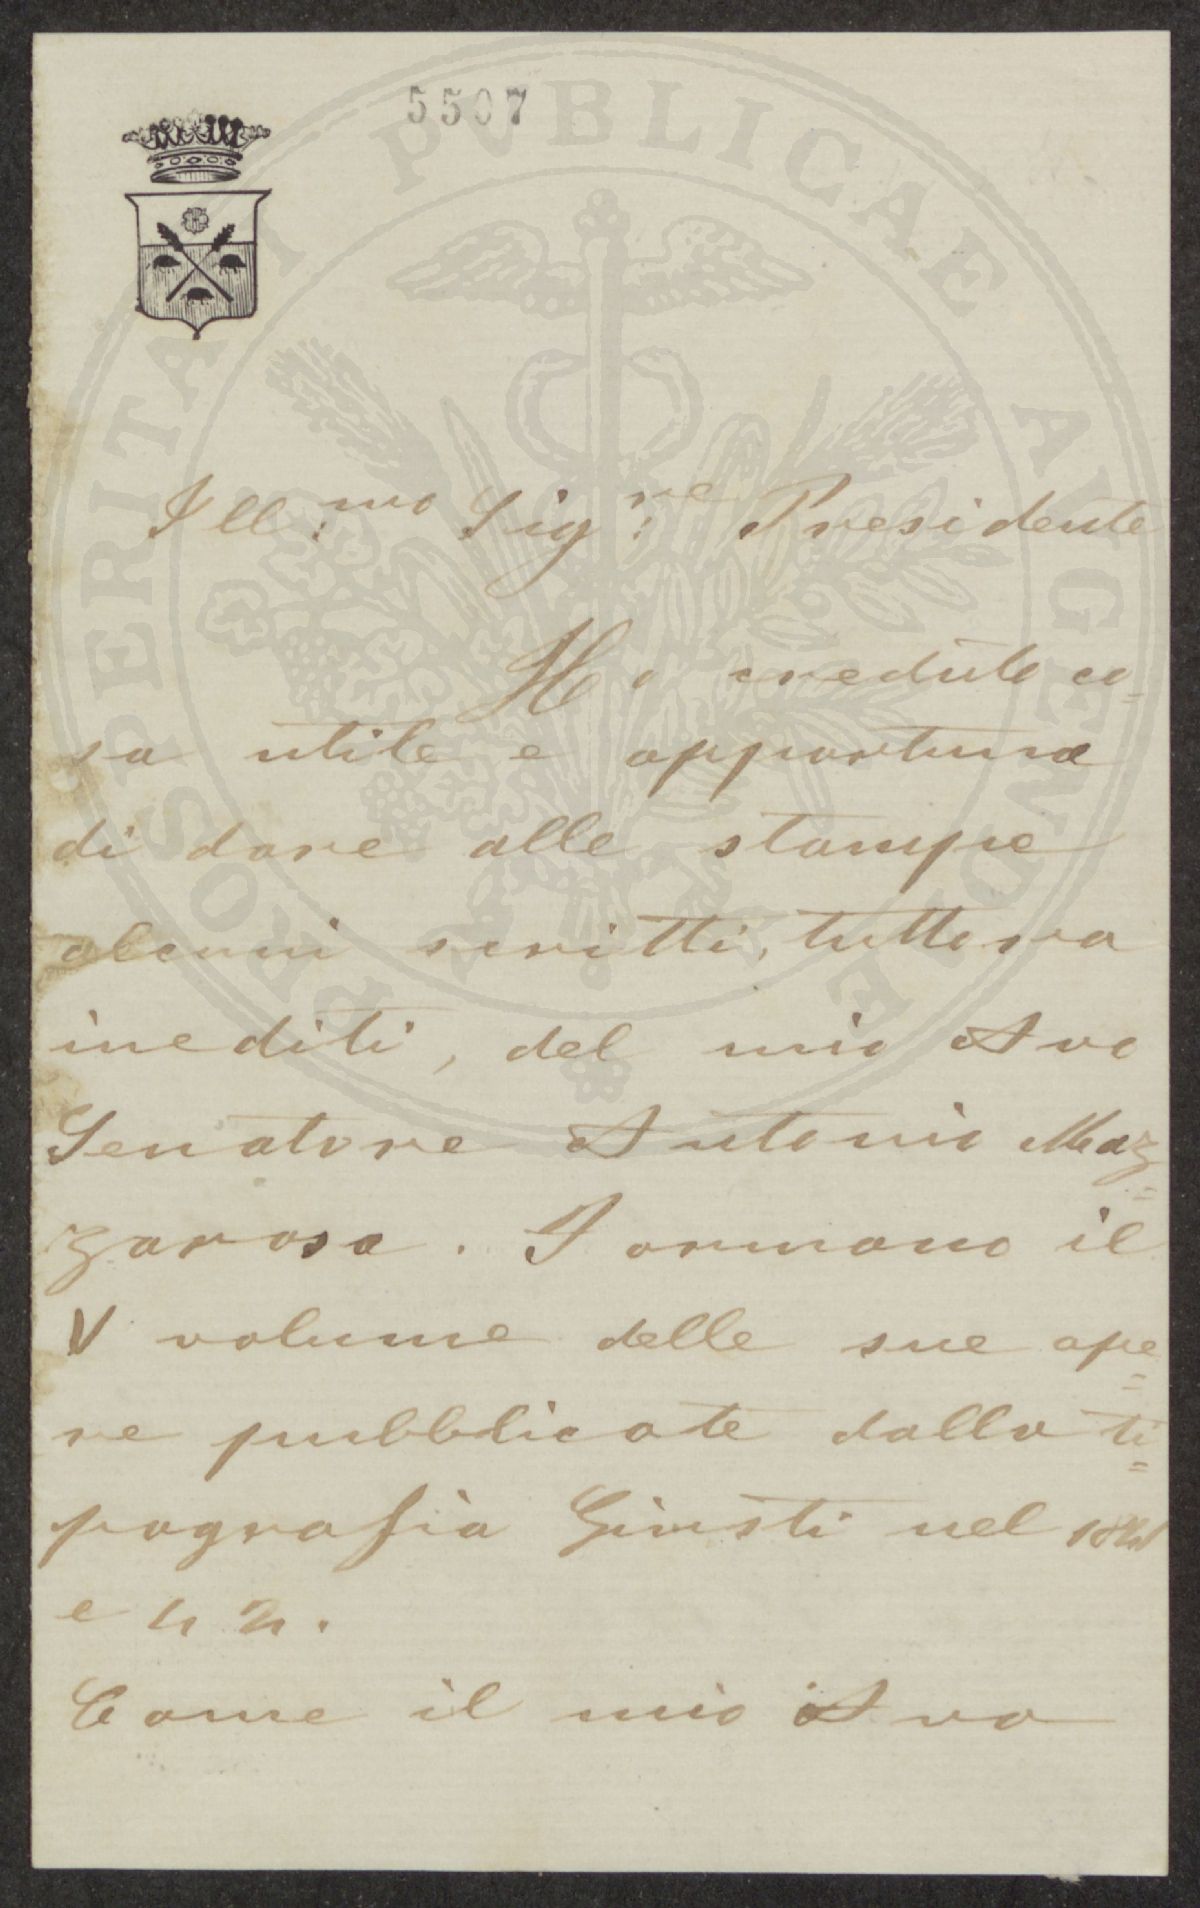 5507
PROSPERITATI PVBLICAE AVGENDAE
Ill:mo Sig:re Presidente
Ho creduto co=
sa utile e opportuna
di dare alle stampe
alcuni scritti, tuttora
inediti, del mio Avo
Senatore Antonio Maz=
zarosa. Formano il
V volume delle sue ope=
re pubblicate dalla ti=
pografia Giusti nel 1841
e 42.
Come il mio Avo